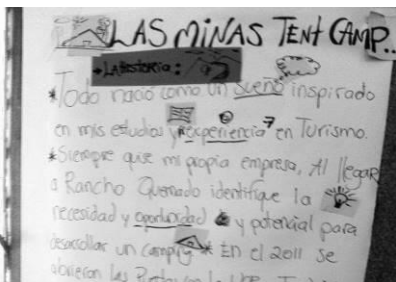 LAS MINAS TENT CAMP...
LA HISTORIA:
*Todo nació como un sueño inspirado
en mis estudios y experiencia en Turismo.
*Siempre quise mi propia empresa, Al llegar
a Rancho Quemado identifique la
necesidad y oportunidad y potencial para
desarrollar un camping * En el 2011 se
abrieron las